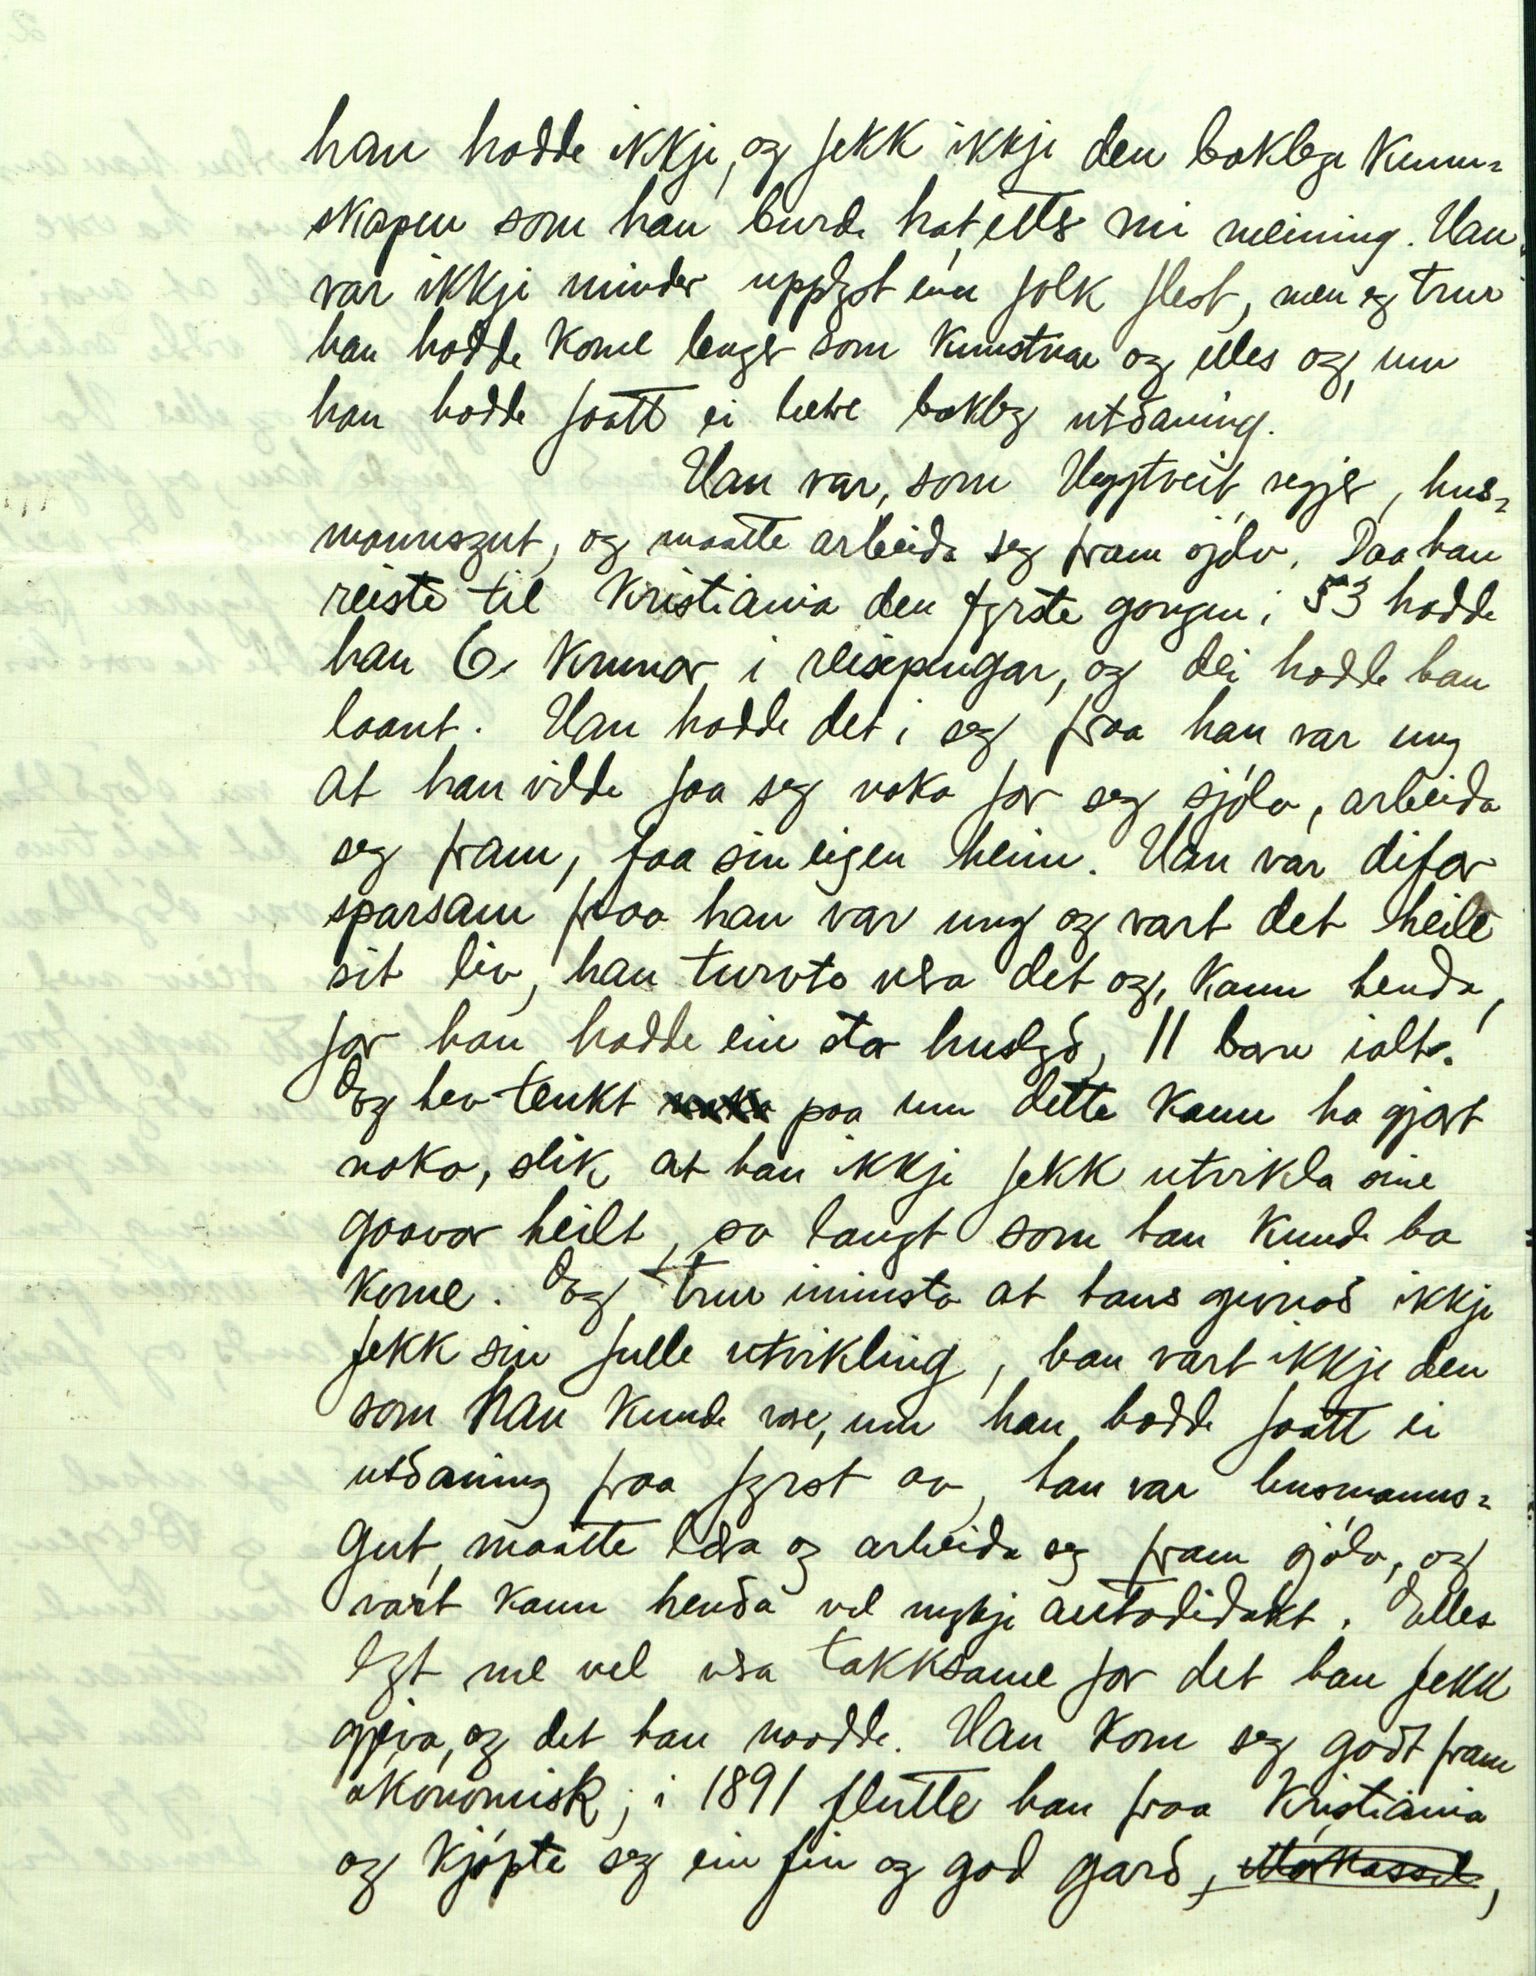 han hadde ikkje, og fekk ikkje den boklege kunn-
skapen som han burde hat, etter mi meining. Han
var ikkje minder upplyst enn folk flest, men eg trur
han hadde kome lenger som kunstnar og elles og, um
han hadde faatt ei betre bokleg utdaning.
Han var, som Veggtveit segjer, hus-
mannsgut, og maatte arbeida seg fram sjølv. Daa han
reiste til Kristiania den fyrste gongen i 53 hadde
han 6 kronor i reisepengar, og dei hadde han
laant. Han hadde det i seg fraa han var ung
at han vilde faa seg noko for seg sjølv, arbeida
seg fram, faa sin eigen heim. Han var difor
sparsam fraa han var ung og vart det heile
sit liv, han turvte vera det og, kann henda,
for han hadde ein stor huslyd, 11 born ialt.
Eg hev tenkt paa um dette kann ha gjort
noko, slik at han ikkje fekk utvikla sine
gaavor heilt, so langt som han kunde ha
kome. Eg trur iminsto at hans givnad ikkje
fekk sin fulle utvikling, han vart ikkje den
som han kunde vore, um han hadde faatt ei
utdaning fraa fyrst av, han var husmanns-
gut, maatte læra og arbeida seg fram sjølv, og
vart kann henda vel mykje autodidakt. Elles
lyt me vel vera takksame for det han fekk
gjeva, og det han naadde. Han kom seg godt fram
økonomisk; i 1891 flutte han fraa Kristiania
og kjøpte seg ein fin og god gard,